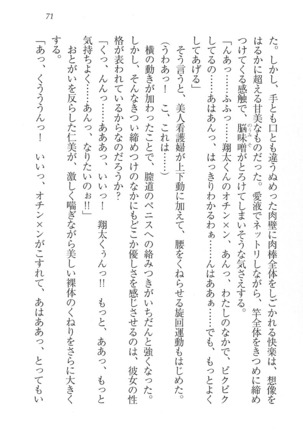 71
た。しかし、手とも口とも違うぬめった肉壁に肉棒全体をしごかれる快楽は、想像を
はるかに超える甘美なものだった。愛液でネットリしながら、竿全体をきつめに締め
つけてくる感触で、脳味噌がとろけてしまいそうな気さえする。
「んあっ……ふふっ……翔太くんのオチン×ン、あんっ、わたしのなかで、ビクビク
してるの……はあんっ、はっきりわかるわぁ……んはああぁ……でも、もっとよく
してあげる」
そう言うと、美人看護婦が上下動に加えて、腰をくねらせる旋回運動もはじめた。
（うわああっ！　こ、これは……）
横の動きが加わったことで、膣道のペニスへの絡みつきがいちだんと強くなった。
しかし、そんなきつい締めつけのなかにもどこか優しさを感じさせるのは、彼女の性
格が表われているからなのだろうか？
「あっ、んっ……あああっ、いいっ！　翔太くぅんっ！　もっと、ああっ、もっと
気持ちよく……あんっ、なりたいのぉ!!」
おとがいを反らした仁美が、激しく喘ぎながら美しい裸体のくねりをさらに大きく
する。
「あっ、くうううんっ！　いいっ、オチン×ンがこすれて、あはああっ、とってもい